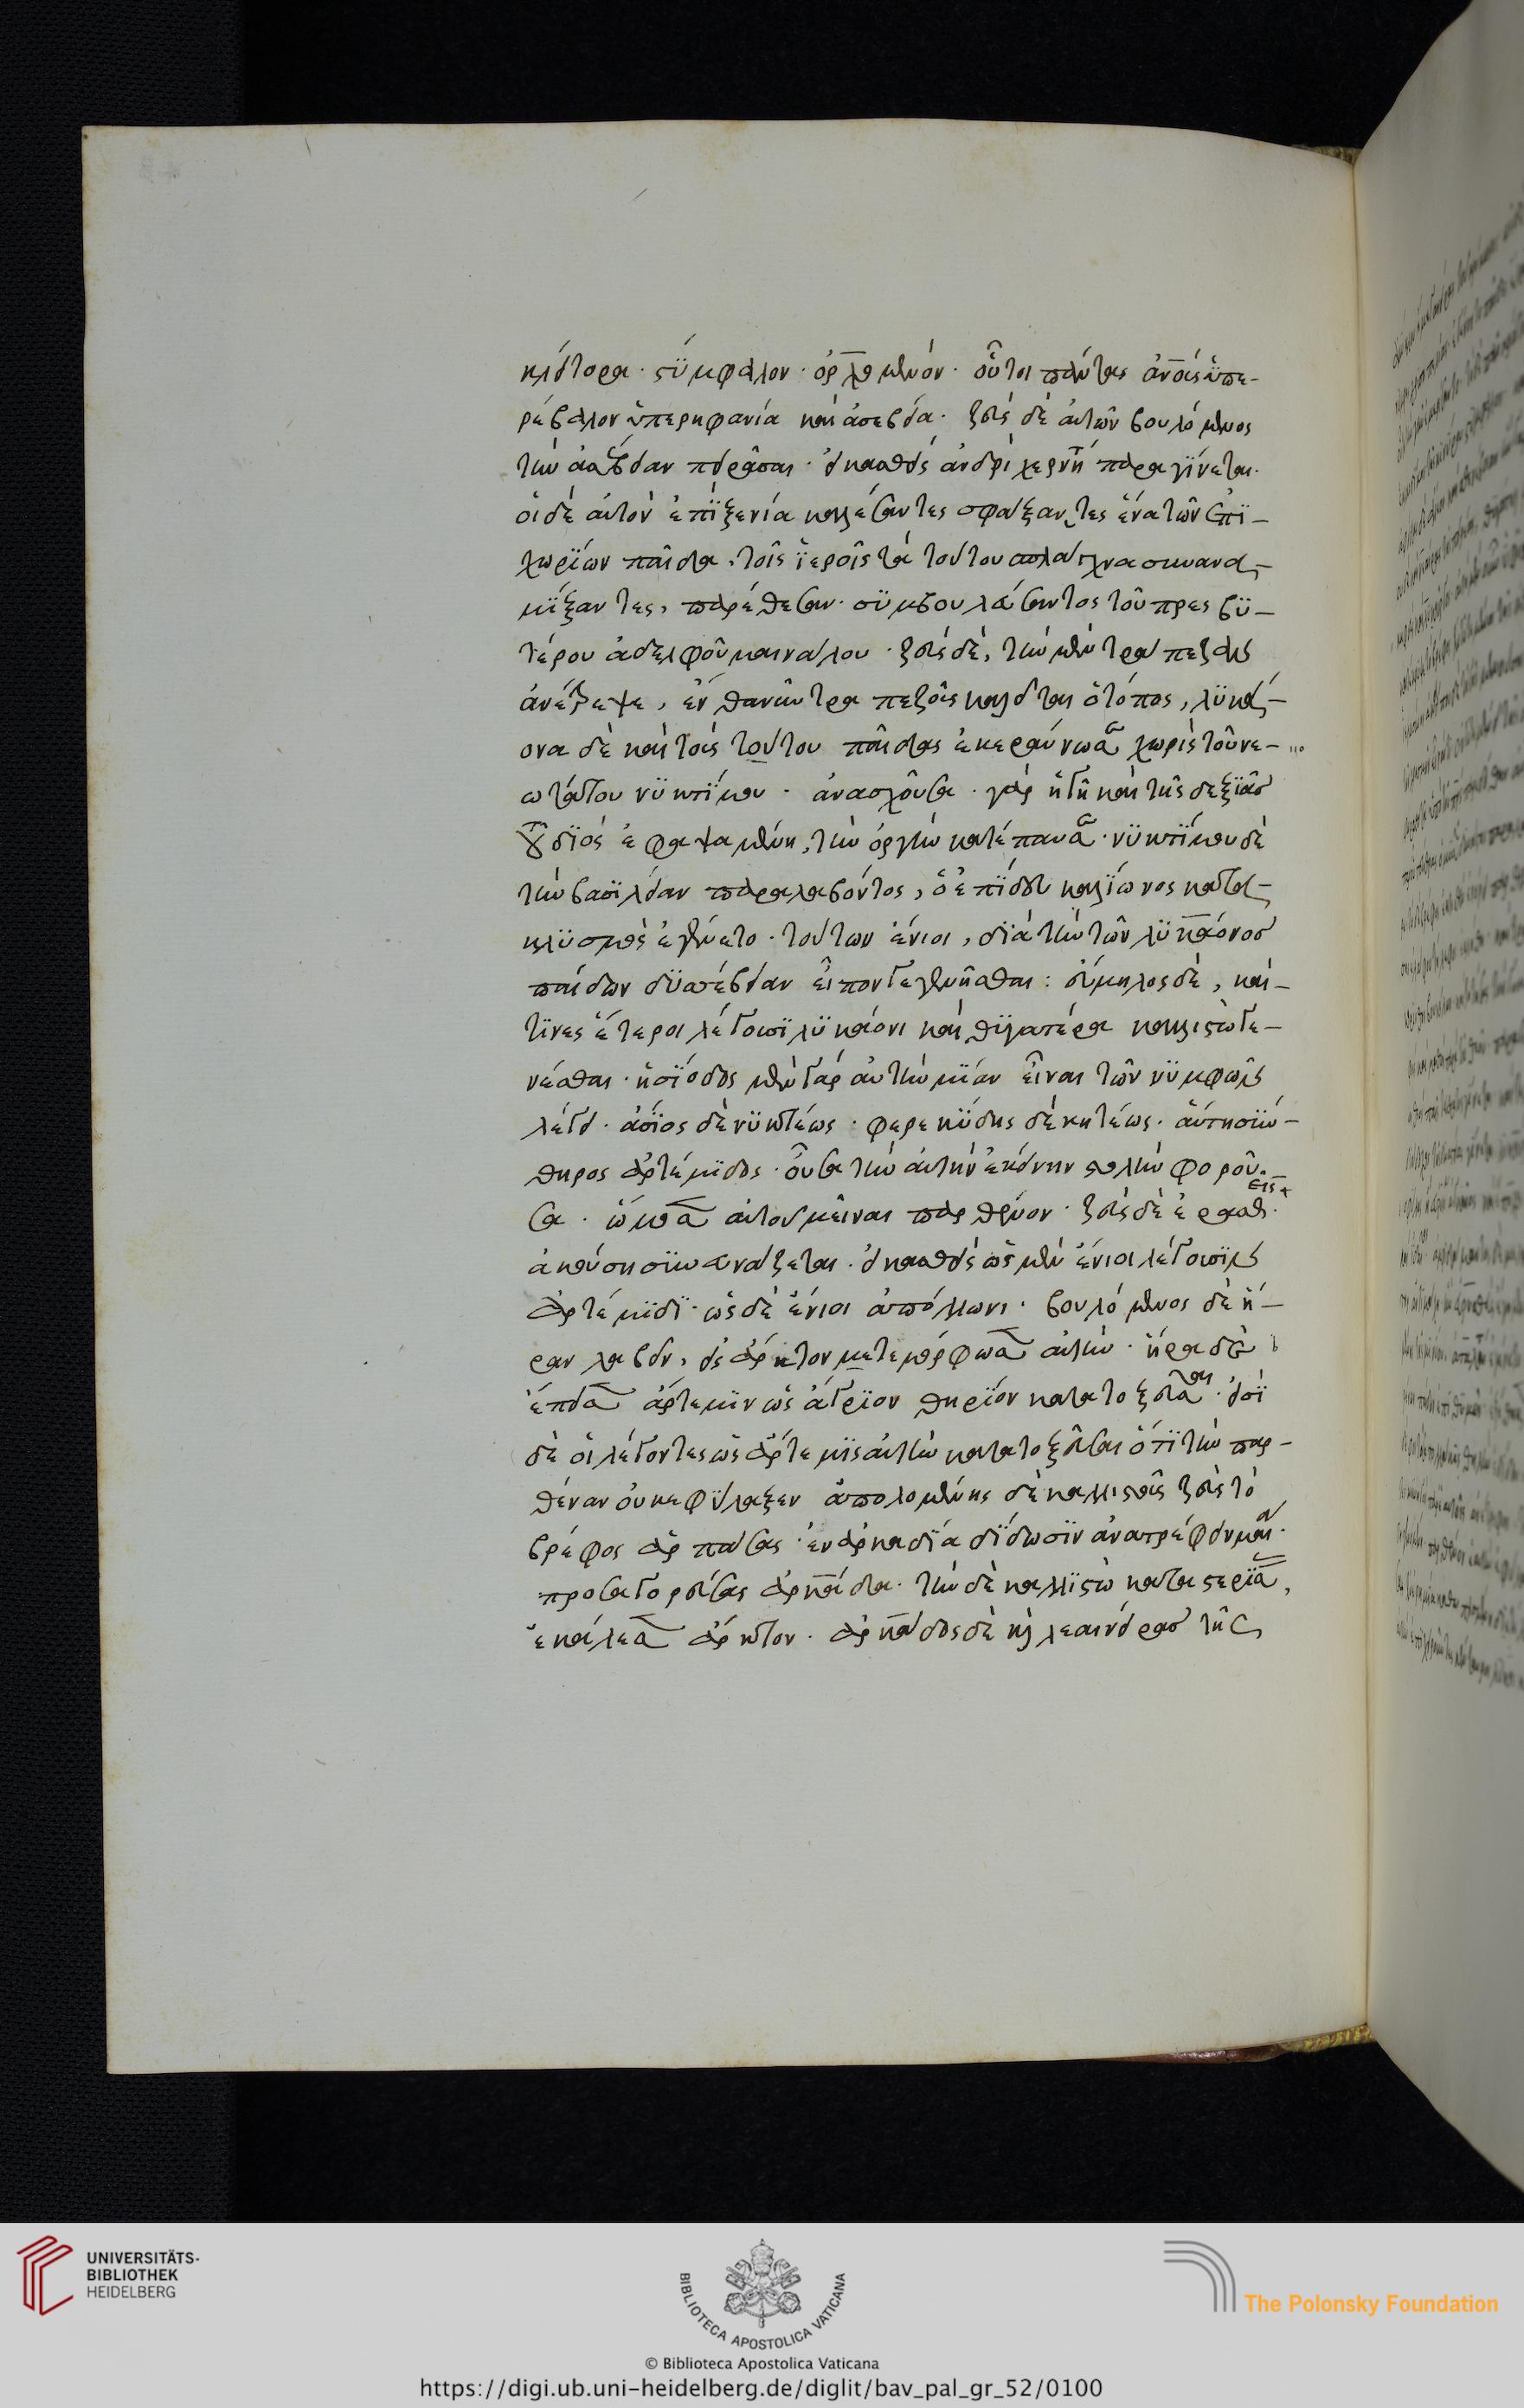 κλείτορα · στύμφαλον · ὀρχομενόν · οὗτοι πάντας ἀνους ὑπε-
ρέβαλον ὑπερηφανία καὶ ἀσεβεία · ζεὺς δὲ αὐτῶν βουλόμενος
τὴν ἀσέβειαν πειρᾶσαι · εἰκασθεὶς ἀνδρὶ χερνήτη παραγίνεται ·
οἱ δὲ αὐτὸν ἐπὶ ξενία καλέσαντες σφάξαντες ἕνα τῶν ἐπι-
χωρίων παῖδα, τοῖς ἱεροῖς τὰ τούτου σπλάγχνα συνανα-
μίξαντες, παρέθεσαν · συμβουλεύσαντος τοῦ πρεσβυ-
τέρου ἀδελφοῦ μαινάλου · ζεὺς δὲ, τὴν μὲν τράπεζαν
ἀνέτρεψε, ἔνθα νῦν τραπεζοῦς καλεῖται ὁ τόπος, λυκά-
ονα δὲ καὶ τοὺς τούτου παῖδας ἐκεραύνωσε χωρὶς τοῦ νε-
ωτάτου νυκτίμου · ἀνασχοῦσα · γὰρ ἡ γῆ καὶ τῆς δεξιᾶς
τοῦ διὸς ἐφαψαμένη, τὴν ὀργὴν κατέπαυσε · νυκτίμου δὲ
τὴν βασιλείαν παραλαβόντος, ὁ ἐπὶ δευκαλίωνος κατα-
κλυσμὸς ἐγένετο · τούτων ἔνιοι, διὰ τὴν τῶν λυκάονος
παίδων δυσσέβειαν εἶπον γεγενῆσθαι : εὔμηλος δὲ, καὶ
τινες ἕτεροι λέγουσι λυκάονι καὶ θυγατέρα καλλιστὼ γε-
νέσθαι · ἡσίοδος μὲν γὰρ αὐτὴν μίαν εἶναι τῶν νυμφῶν
λέγει · ἄσιος δὲ νυκτέως · φερεκύδης δὲ κητέως · αὕτη σύν-
θηρος ἀρτέμιδος · οὖσα τὴν αὐτὴν ἐκείνην στολὴν φοροῦ-
σα · ὤμοσεν αὐτοῦ μεῖναι παρθένον · ζεὺς δὲ ἐρασθεὶς ·
ἀκούση συνευνάζεται · εἰκασθεὶς ὡς μὲν ἔνιοι λέγουσιν
ἀρτέμιδι · ὡς δὲ ἔνιοι ἀπόλλωνι · βουλόμενος δὲ ἥ-
ραν λαβεῖν, εἰς ἄρκτον μετεμόρφωσεν αὐτήν · ἥρα δὲ
ἔπεισεν ἄρτεμιν ὡς ἄγριον θηρίον κατατοξεῦσαι · εἰσὶ
δὲ οἱ λέγοντες ὡς ἄρτεμις αὐτὴν κατατοξεῦσαι ὅτι τὴν παρ-
θένιαν οὐκ ἐφύλαξεν ἀπολομένης δὲ καλλιστοῦς ζεὺς τὸ
βρέφος ἁρπάσας · ἐν ἀρκαδία δίδωσιν ἀνατρέφειν μαῖα ·
προσαγορεύσας ἀρκάδα · τὴν δὲ καλλιστὼ καταστερίσας,
ἐκάλεσεν ἄρκτον · ἀρκάδος δὲ καὶ λεανείρας τῆς
UNIVERSITÄTS-
BIBLIOTHEK
HEIDELBERG
BIBLIOTECA APOSTOLICA VATICANA
© Biblioteca Apostolica Vaticana
The Polonsky Foundation
https://digi.ub.uni-heidelberg.de/diglit/bav_pal_gr_52/0100